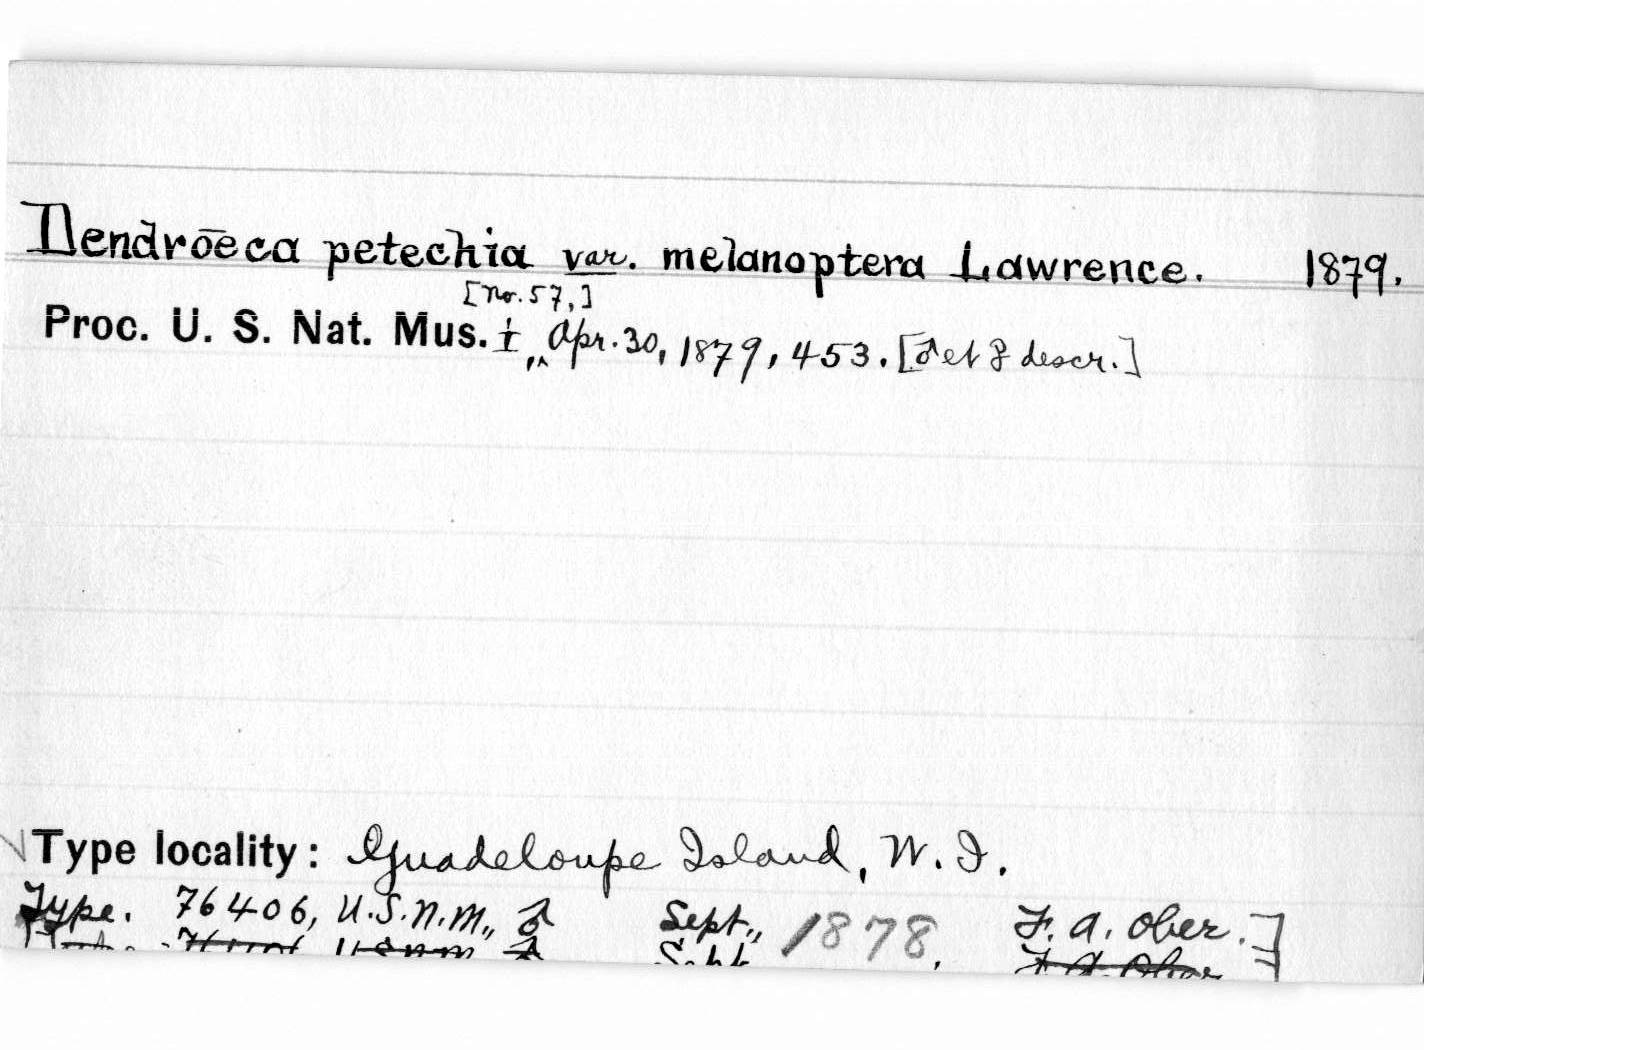 Dendrœca petechia var. melanoptera Lawrence. 1879.
[No. 57,]
Proc. U. S. Nat. Mus. I, Apr. 30, 1879, 453. [♂ et ♀ descr.]
Type locality: Guadeloupe Island, W. I.
Type. 76406, U.S.N.M., ♂ Sept., 1878, F. A. Ober.]
76406 U S N M ♂ Sept F A Ober ]